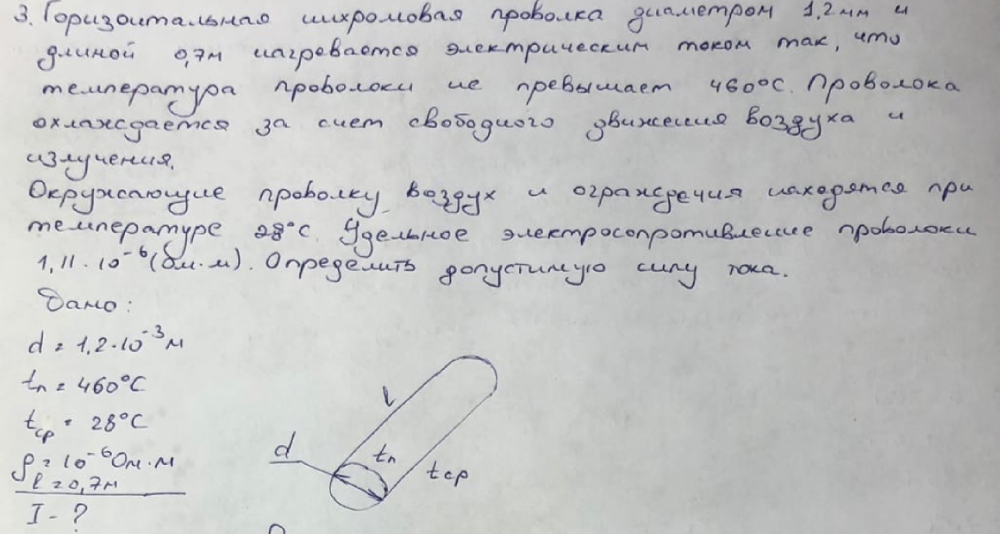 3. Горизонтальная нихромовая проволка диаметром 1,2 мм и
длиной 0,7м нагревается электрическим током так, что
температура проволоки не превышает 460°С. Проволока
охлаждается за счет свободного движения воздуха и
излучения.
Окружающие проволку воздух и ограждения находятся при
температуре 28°С. Удельное электросопротивление проволоки
1,11·10⁻⁶(Ом·м). Определить допустимую силу тока.
Дано:
d = 1,2·10⁻³м
tп = 460°С
tср = 28°С
ρ = 10⁻⁶Ом·м
l = 0,7м
I - ?
l
d
tп
tср